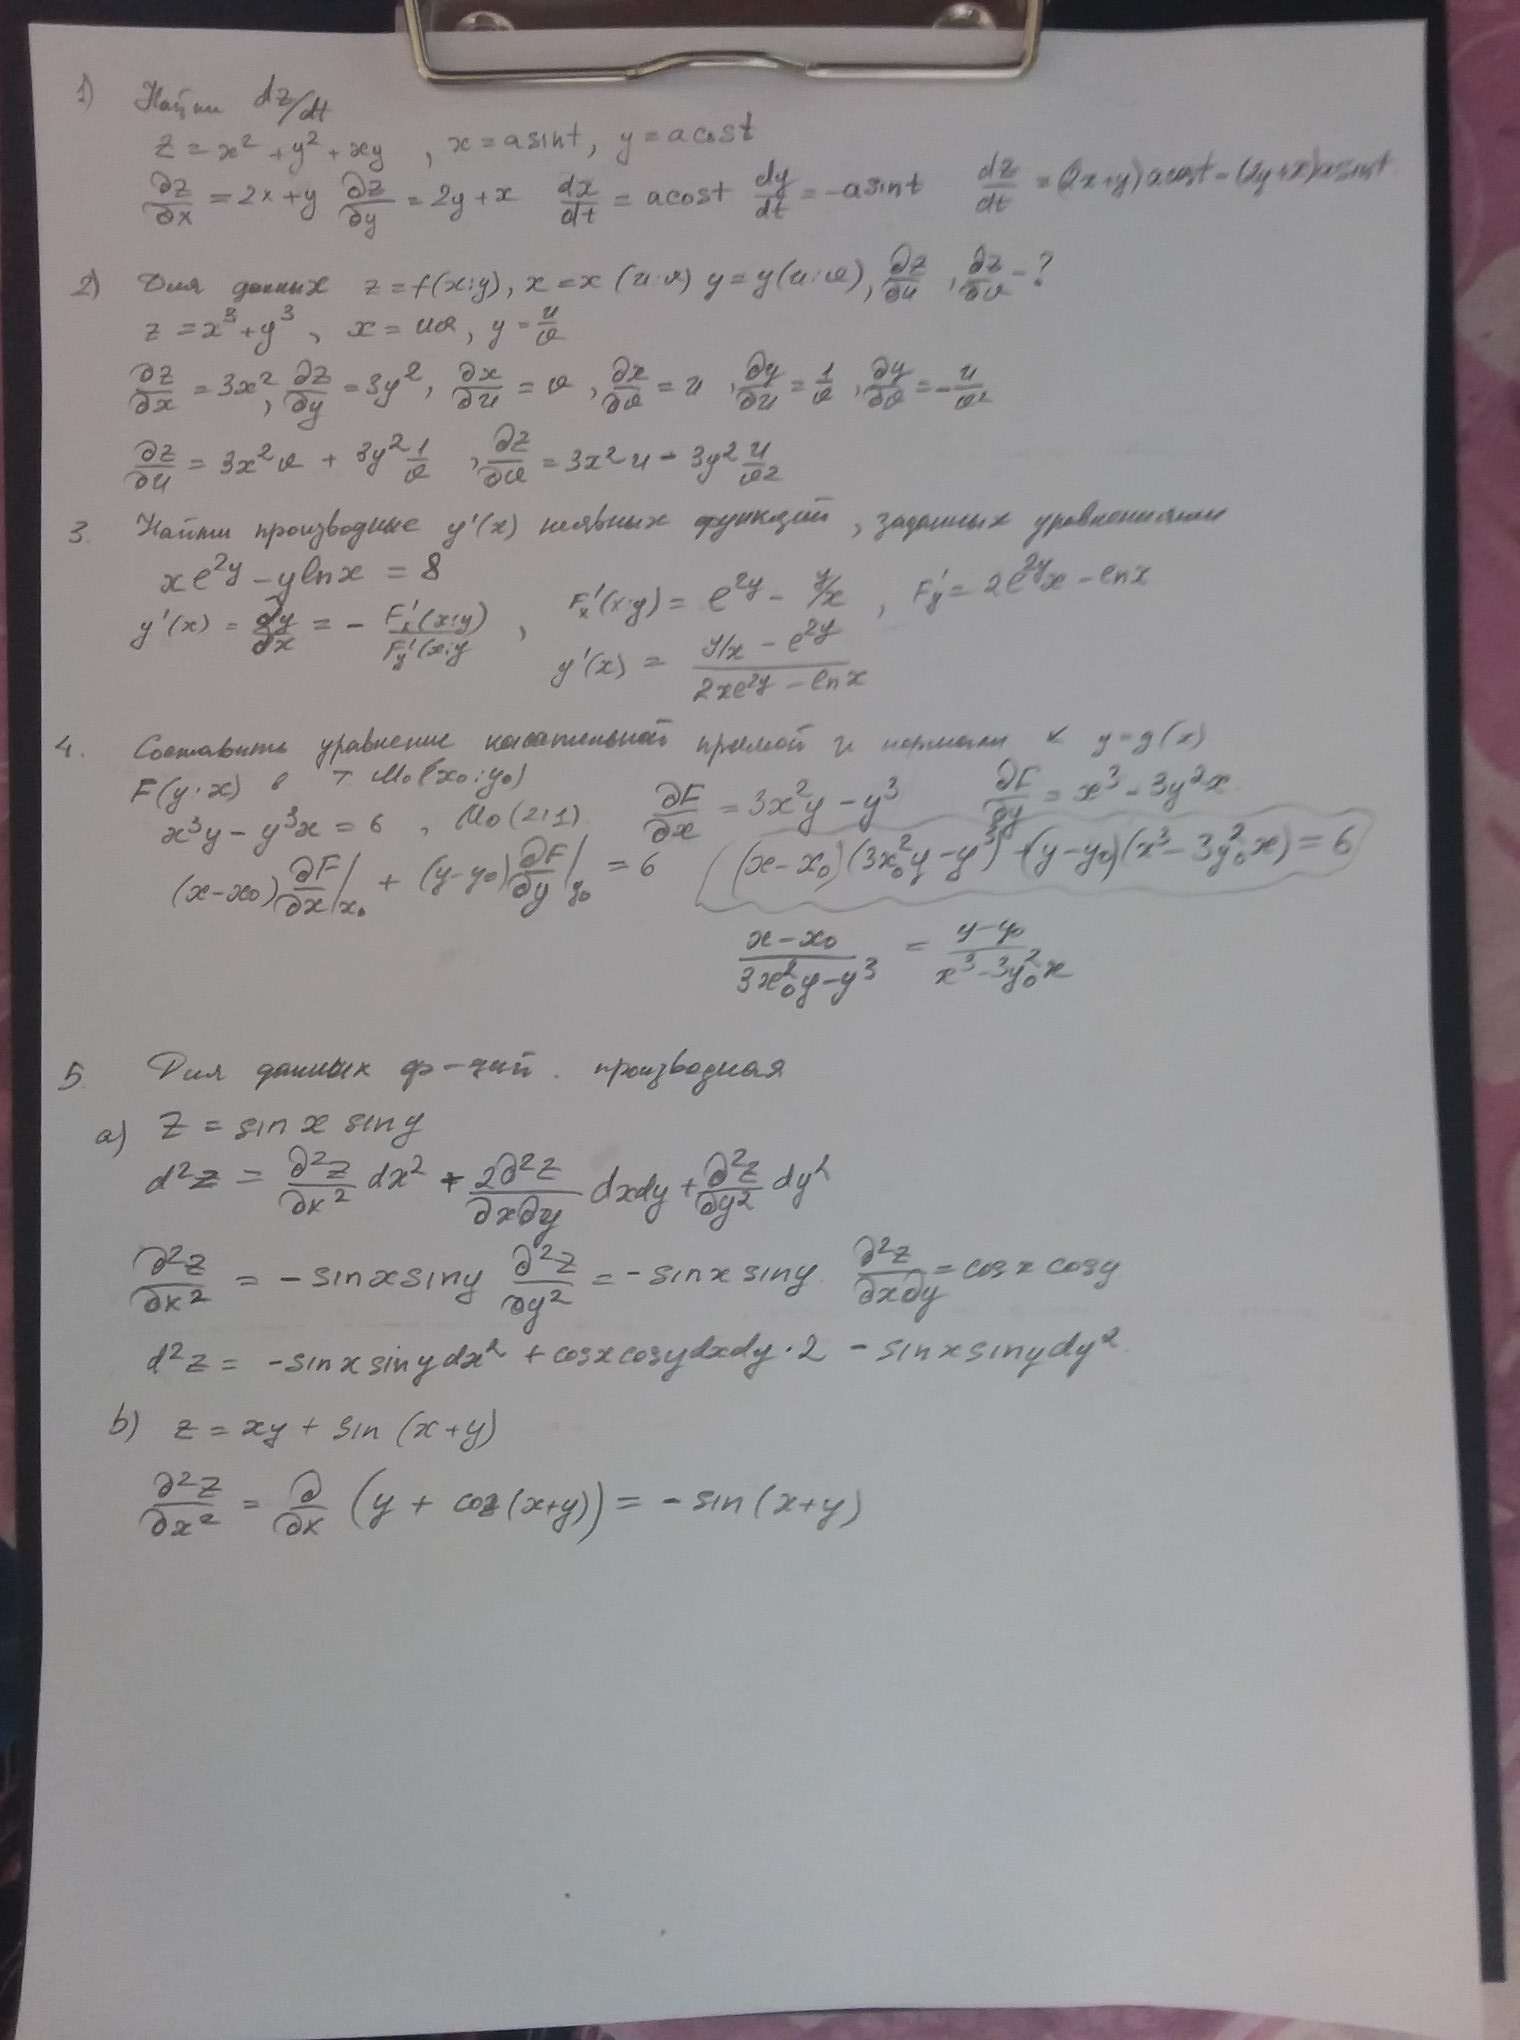 1) Найти dz/dt
z = x² + y² + xy , x = a sint, y = a cost
∂z/∂x = 2x + y ∂z/∂y = 2y + x dx/dt = a cost dy/dt = -a sint dz/dt = (2x+y) a cost - (2y+x) a sint
2) Для данных z = f(x;y), x = x (u;v) y = y(u;v), ∂z/∂u , ∂z/∂v - ?
z = x³ + y³ , x = uv, y = u/v
∂z/∂x = 3x², ∂z/∂y = 3y², ∂x/∂u = v , ∂x/∂v = u , ∂y/∂u = 1/v , ∂y/∂v = - u/v²
∂z/∂u = 3x²v + 3y² 1/v , ∂z/∂v = 3x²u - 3y² u/v²
3. Найти производные y'(x) неявных функций, заданных уравнениями
xe^2y - y ln x = 8
y'(x) = dy/dx = - F'x(x;y)/F'y(x;y , F'x(x;y) = e^2y - y/x , F'y = 2e^2y x - ln x
y'(x) = (y/x - e^2y)/(2xe^2y - ln x)
4. Составить уравнение касательной прямой и нормали к y = y(x)
F(y;x) в т M₀(x₀;y₀)
x³y - y³x = 6 , M₀(2;1) ∂F/∂x = 3x²y - y³ ∂F/∂y = x³ - 3y²x
(x-x₀) ∂F/∂x|x₀ + (y-y₀) ∂F/∂y|y₀ = 6 (x-x₀)(3x₀²y - y³) + (y-y₀)(x³ - 3y₀²x) = 6
(x-x₀)/(3x₀²y - y³) = (y-y₀)/(x³ - 3y₀²x)
5. Для данных ф-ций. производная
a) z = sin x sin y
d²z = ∂²z/∂x² dx² + 2∂²z/∂x∂y dxdy + ∂²z/∂y² dy²
∂²z/∂x² = - sin x sin y ∂²z/∂y² = - sin x sin y ∂²z/∂x∂y = cos x cos y
d²z = - sin x sin y dx² + cos x cos y dx dy · 2 - sin x sin y dy²
b) z = xy + sin (x+y)
∂²z/∂x² = ∂/∂x (y + cos (x+y)) = - sin (x+y)